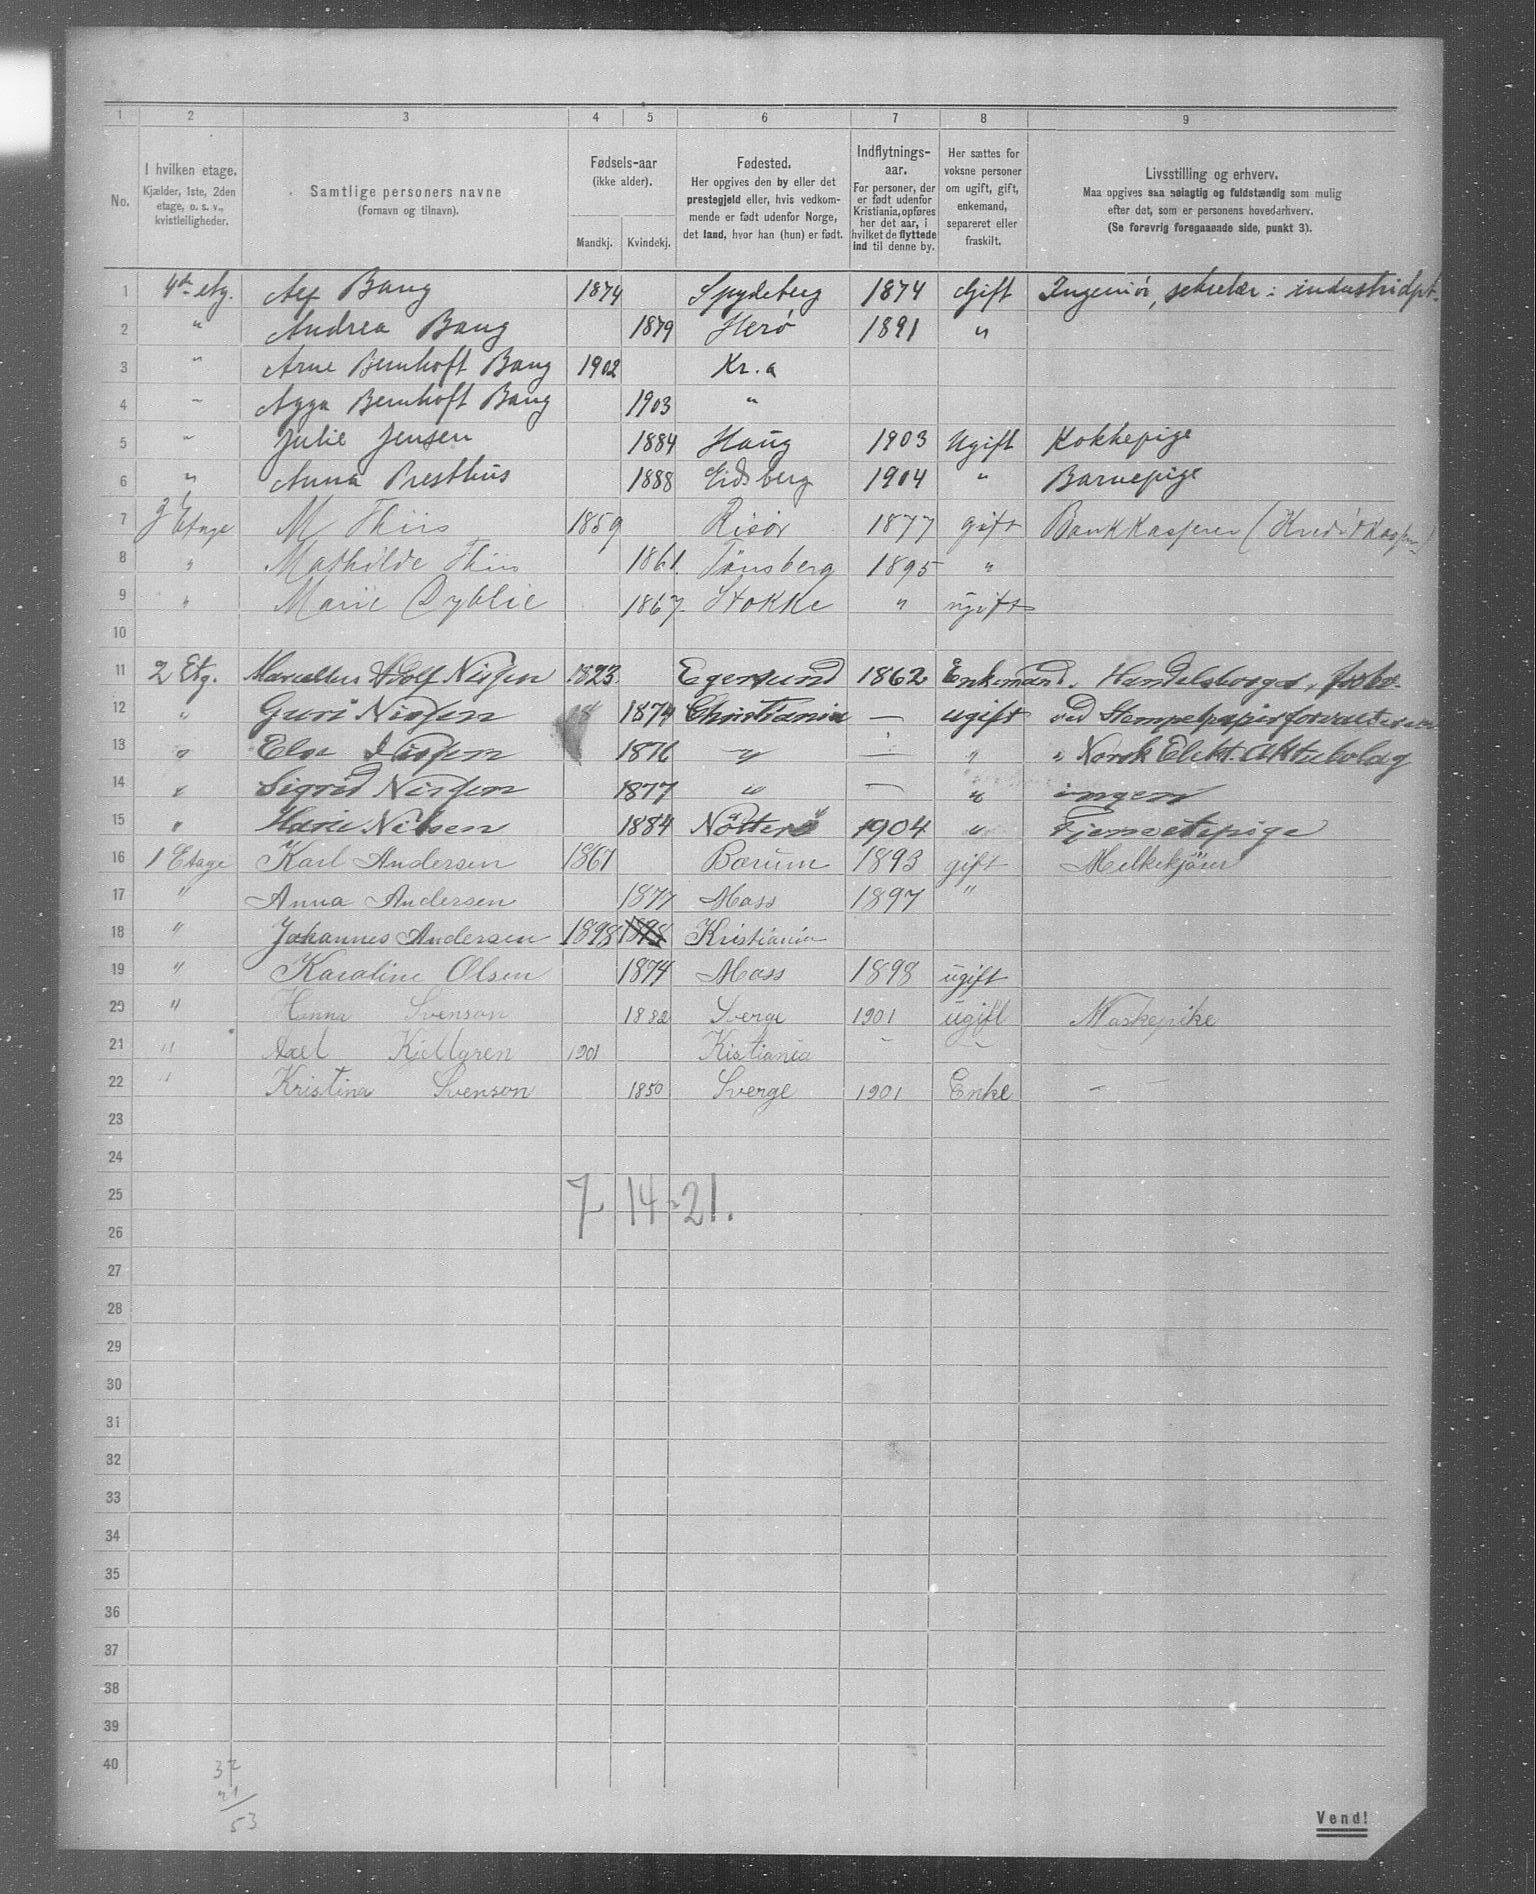 1 2 3 4 5 6 7 8 9
No.
I hvilken etage.
Kjælder, 1ste, 2den
etage, o. s. v.,
kvistleiligheder.
Samtlige personers navne
(Fornavn og tilnavn).
Fødsels-aar
(ikke alder).
Mandkj. Kvindekj.
Fødested.
Her opgives den by eller det
prestegjeld eller, hvis vedkom-
mende er født udenfor Norge,
det land, hvor han (hun) er født.
Indflytnings-
aar.
For personer, der
er født udenfor
Kristiania, opføres
her det aar, i
hvilket de flyttede
ind til denne by.
Her sættes for
voksne personer
om ugift, gift,
enkemand,
separeret eller
fraskilt.
Livsstilling og erhverv.
Maa opgives saa nøiagtig og fuldstændig som mulig
efter det, som er personens hovederhverv.
(Se forøvrig foregaaende side, punkt 3).
1 4de etg. Alf Bang 1874 Spydeberg 1874 Gift Ingeniør, sekretær i industridpt.
2 " Andrea Bang 1879 Herø 1891 "
3 " Arne Bernhoft Bang 1902 Kr.a
4 " Agga Bernhoft Bang 1903 "
5 " Julie Jensen 1884 Haug 1903 Ugift Kokkepige
6 " Anna Presthus 1888 Eidsberg 1904 " Barnepige
7 3 Etage M Thiis 1859 Risør 1877 gift Bankkasserer
8 " Mathilde Thiis 1861. Tønsberg 1895 "
9 " Marie Dyblie 1867. Stokke " ugift
10
11 2 Etg. Marcellus Adolf Nissen 1823 Egersund 1862 Enkemand. Handelsborger, forhv.
12 " Guri Nissen 1874 Christiania — ugift ved Stempelpapirforvalteren
13 " Elsa Nissen 1876 " — " " Norsk Elekt. Aktiebolag
14 " Sigrid Nissen 1877 " — " ingen
15 " Marie Nilsen 1884 Nötterö 1904 " Tjenestepige
16 1 Etage Karl Andersen 1867 Bærum 1893 gift Melkekjörer
17 " Anna Andersen 1877 Moss 1897 "
18 " Johannes Andersen 1898 1898 Kristiania
19 " Karoline Olsen 1874 Moss 1898 ugift
20 " Hanna Svenson 1882 Sverge 1901 ugift Waskepike
21 " Axel Kjellgren 1901 Kistiania – –
22 " Kristina Svenson 1850 Sverge 1901 Enke –
23
24
25
7 14 = 21.
26
27
28
29
30
31
32
33
34
35
36
37
38
39
40
32
21
53
Vend!